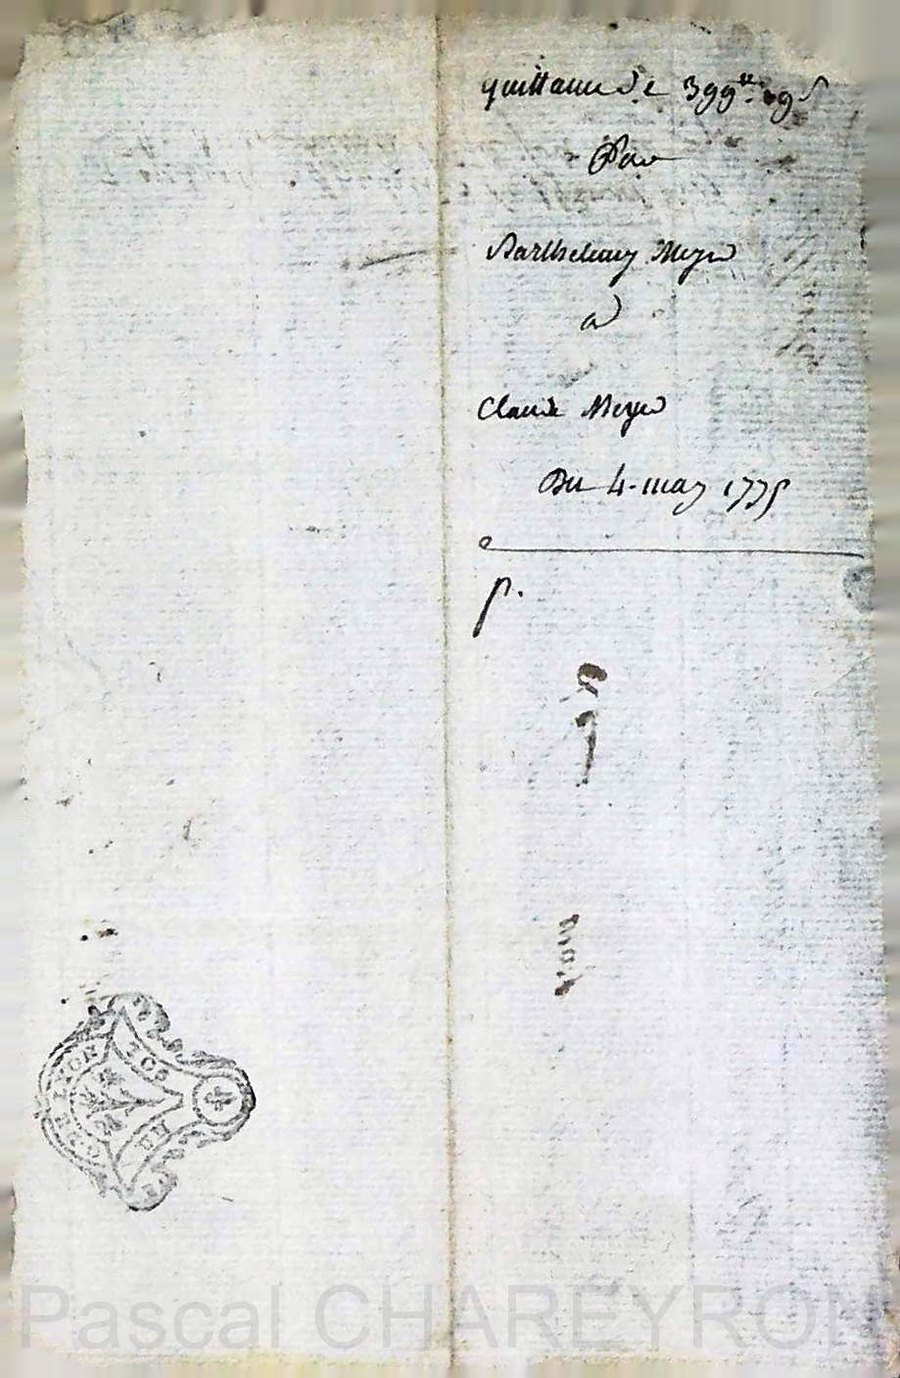 quittance de 399ᵗᵗ 9ˢ
Par
Barthelemy Meyer
a
Claude Meyer
Du 4. may 1775
p.
GEN
DE LYON
Pascal CHAREYRON